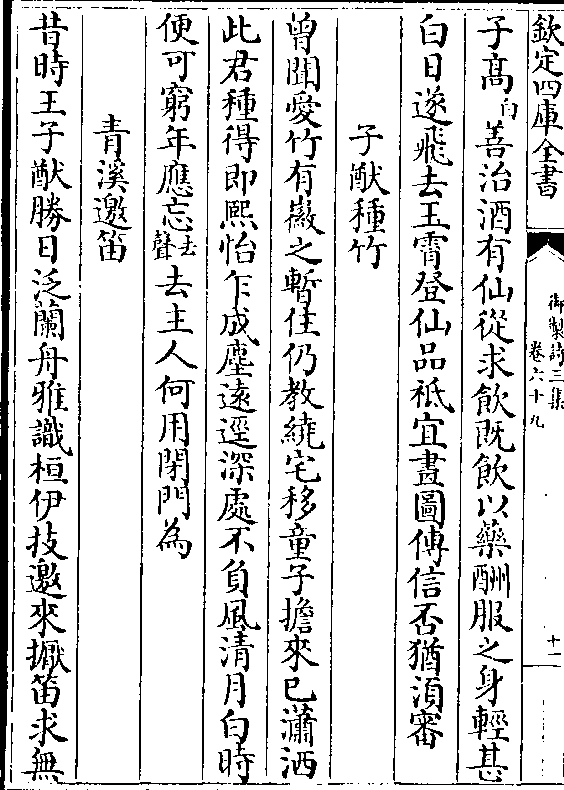 欽定四庫全書
御製詩三集
卷六十九
十一
子高白善治酒有仙從求飲既飲以藥酬服之身輕甚
白日遂飛去玉霄登仙品祗宜畫圖傳信否猶湏審
子猷種竹
曾聞愛竹有徽之暫住仍教繞宅移童子擔來已瀟洒
此君種得即熙怡乍成塵遠逕深處不負風清月白時
便可窮年應忘去聲去主人何用閉門為
青溪邀笛
昔時王子猷勝日泛蘭舟雅識桓伊技邀來擫笛求無